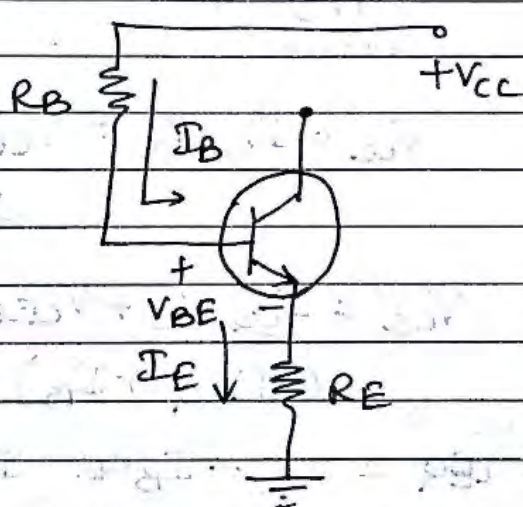 +VCC
RB
IB
+
VBE
-
IE
RE